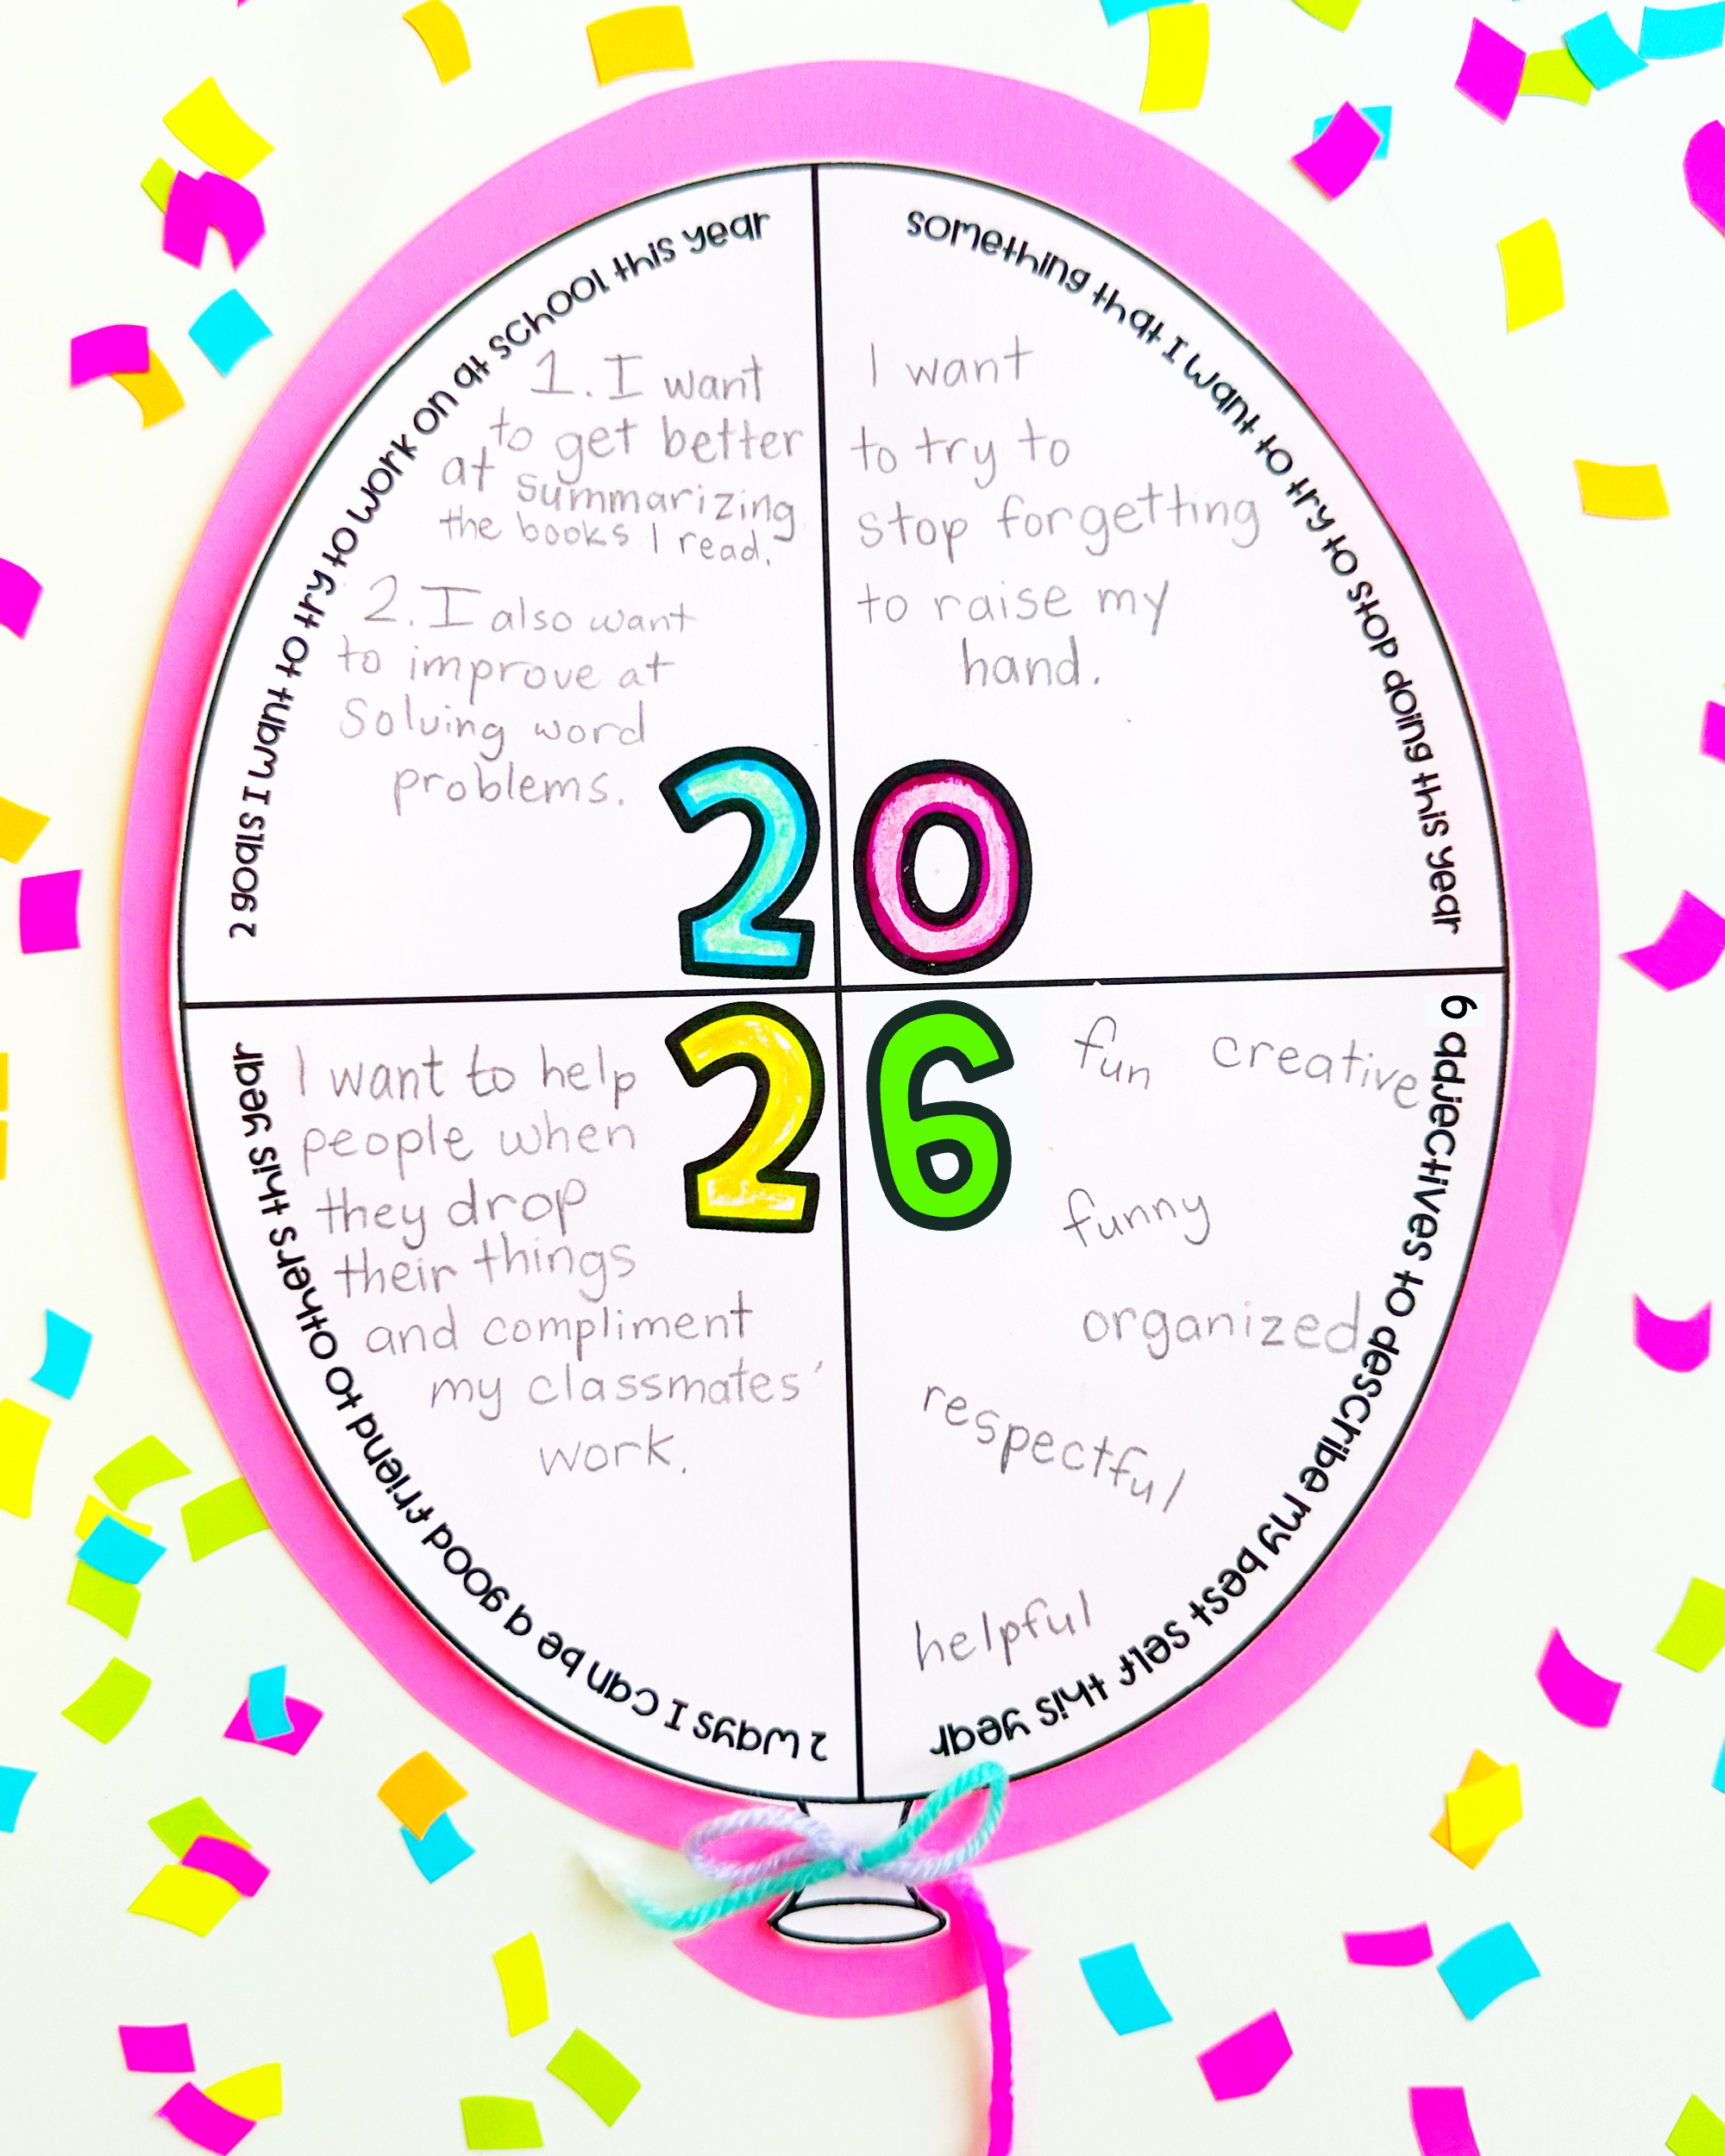 2 goals I want to try to work on at school this year
1. I want
to get better
at summarizing
the books I read.
2. I also want
to improve at
Solving word
problems.
something that I want to try to stop doing this year
I want
to try to
stop forgetting
to raise my
hand.
20
26
2 ways I can be a good friend to others this year
I want to help
people when
they drop
their things
and compliment
my classmates'
work.
6 adjectives to describe my best self this year
fun creative
funny
organized
respectful
helpful